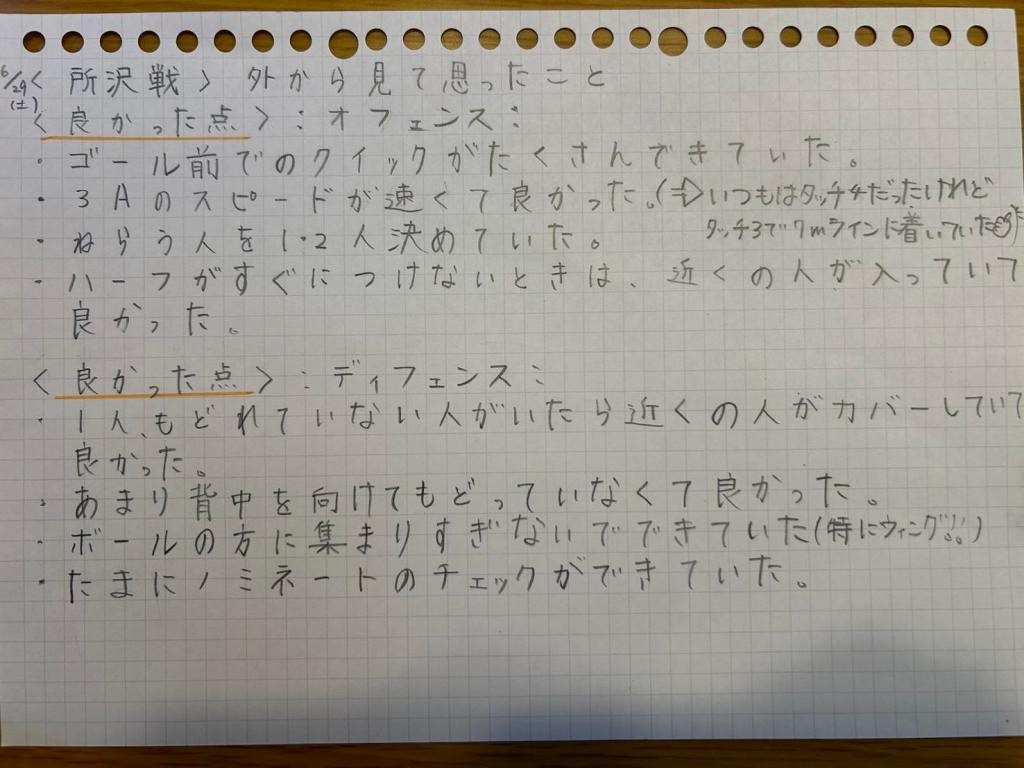 6/29(土)<所沢戦> 外から見て思ったこと
<良かった点>:オフェンス:
・ゴール前でのクイックがたくさんできていた。
・3Aのスピードが速くて良かった。(⇒いつもはタッチ4だったけれど
タッチ3で7mラインに着いていた
・ねらう人を1・2人決めていた。
・ハーフがすぐにつけないときは、近くの人が入っていて
良かった。
<良かった点>:ディフェンス:
・1人、もどれていない人がいたら近くの人がカバーしていて
良かった。
・あまり背中を向けてもどっていなくて良かった。
・ボールの方に集まりすぎないでできていた(特にウィング!!)
・たまにノミネートのチェックができていた。